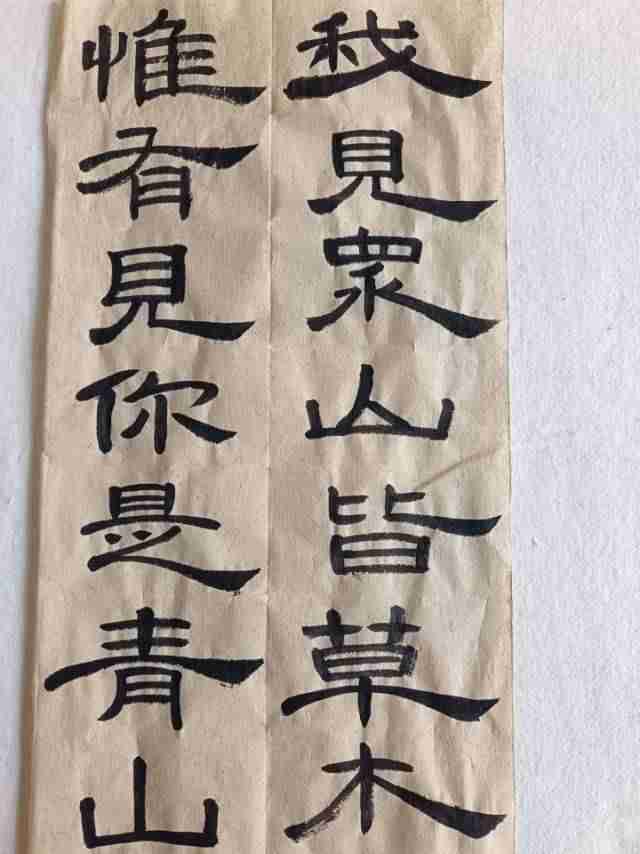 我見眾山皆草木
惟有見你是青山